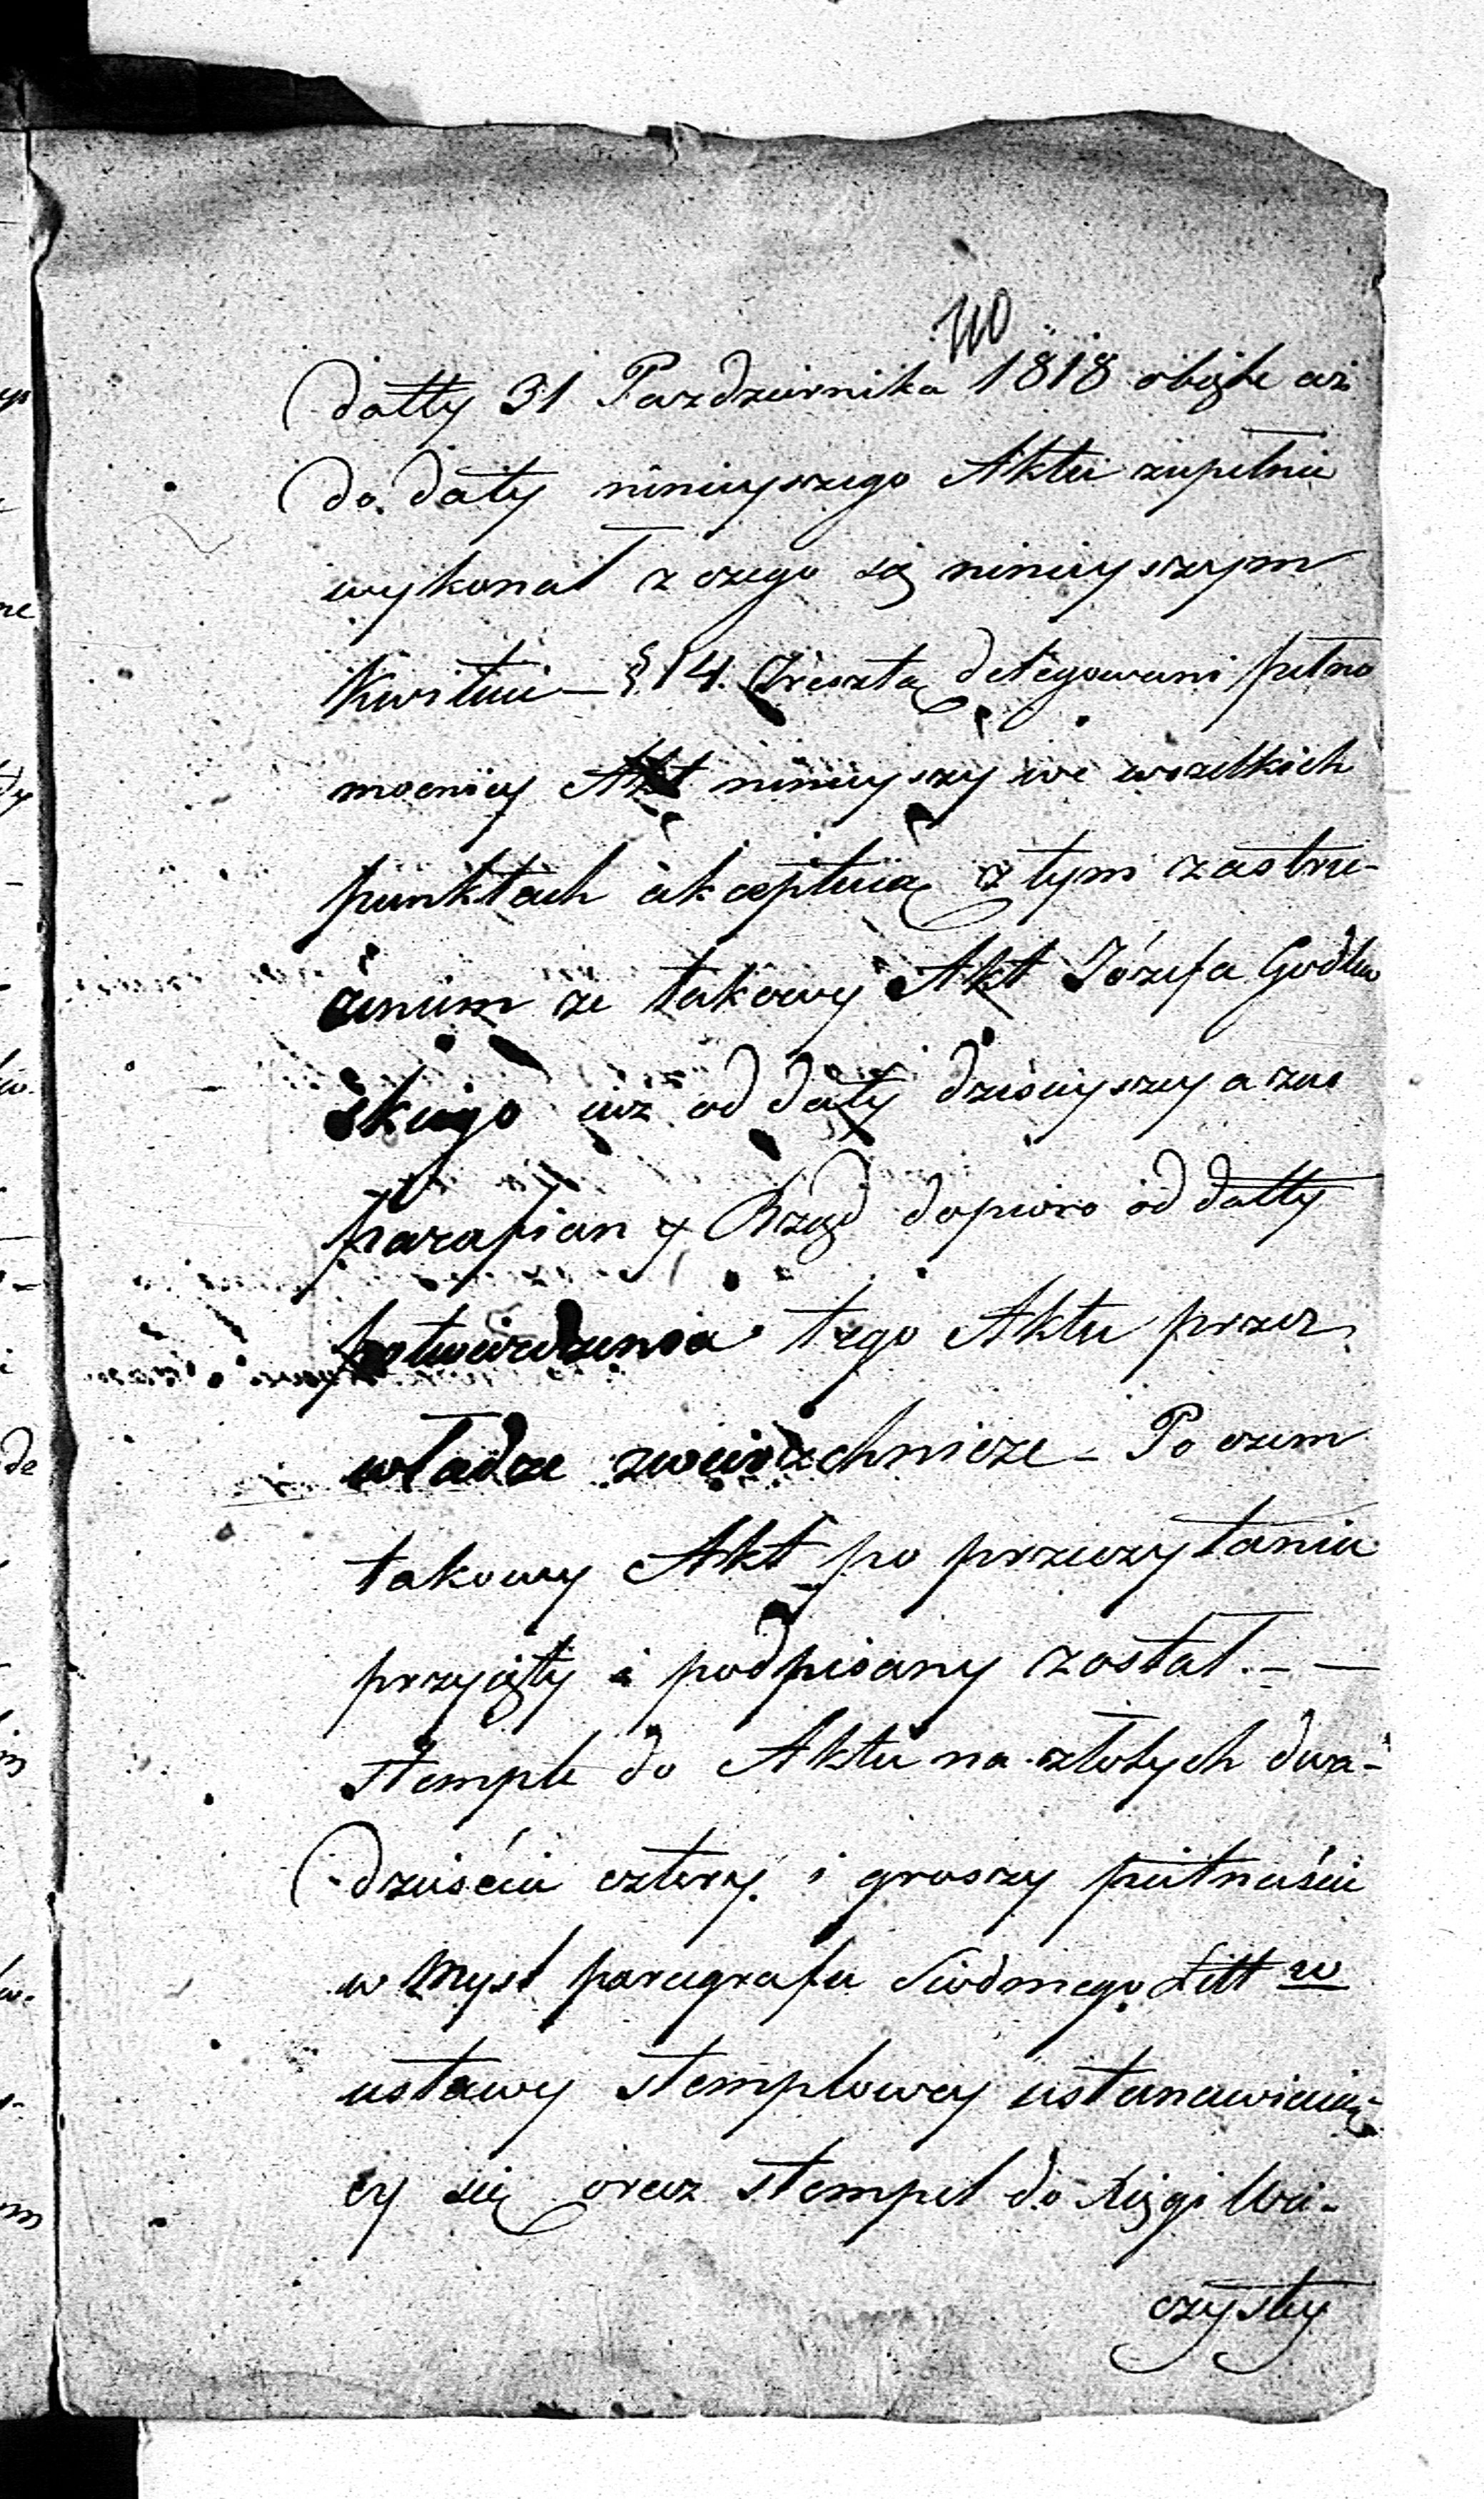 110
datty 31 Pazdziernika 1818 obięte aż
do daty ninieyszego Aktu zupełnie
wykonał z czego się ninieyszym
Kwituie — § 14. Zresztą delegowani pełno
mocnicy Akt ninieyszy we wszelkich
punktach akceptuią z tym zastrze-
żeniem że takowy Akt Józefa Godlew
skiego iuż od daty dzisieyszey a zas
parafian y Rząd dopiero od datty
potwierdzenia tego Aktu przez
władze zwierzchnicze — Po czem
takowy Akt po przeczytaniu
przyięty i podpisany został. — —
Stempel do Aktu na złotych dwa-
dzieścia cztery i groszy piętnaście
w Mysl paragrafu Siódmego Litt w
ustawy stemplowey ustanawiaią-
cy się oraz stempel do Xięgi Wie-
czystey